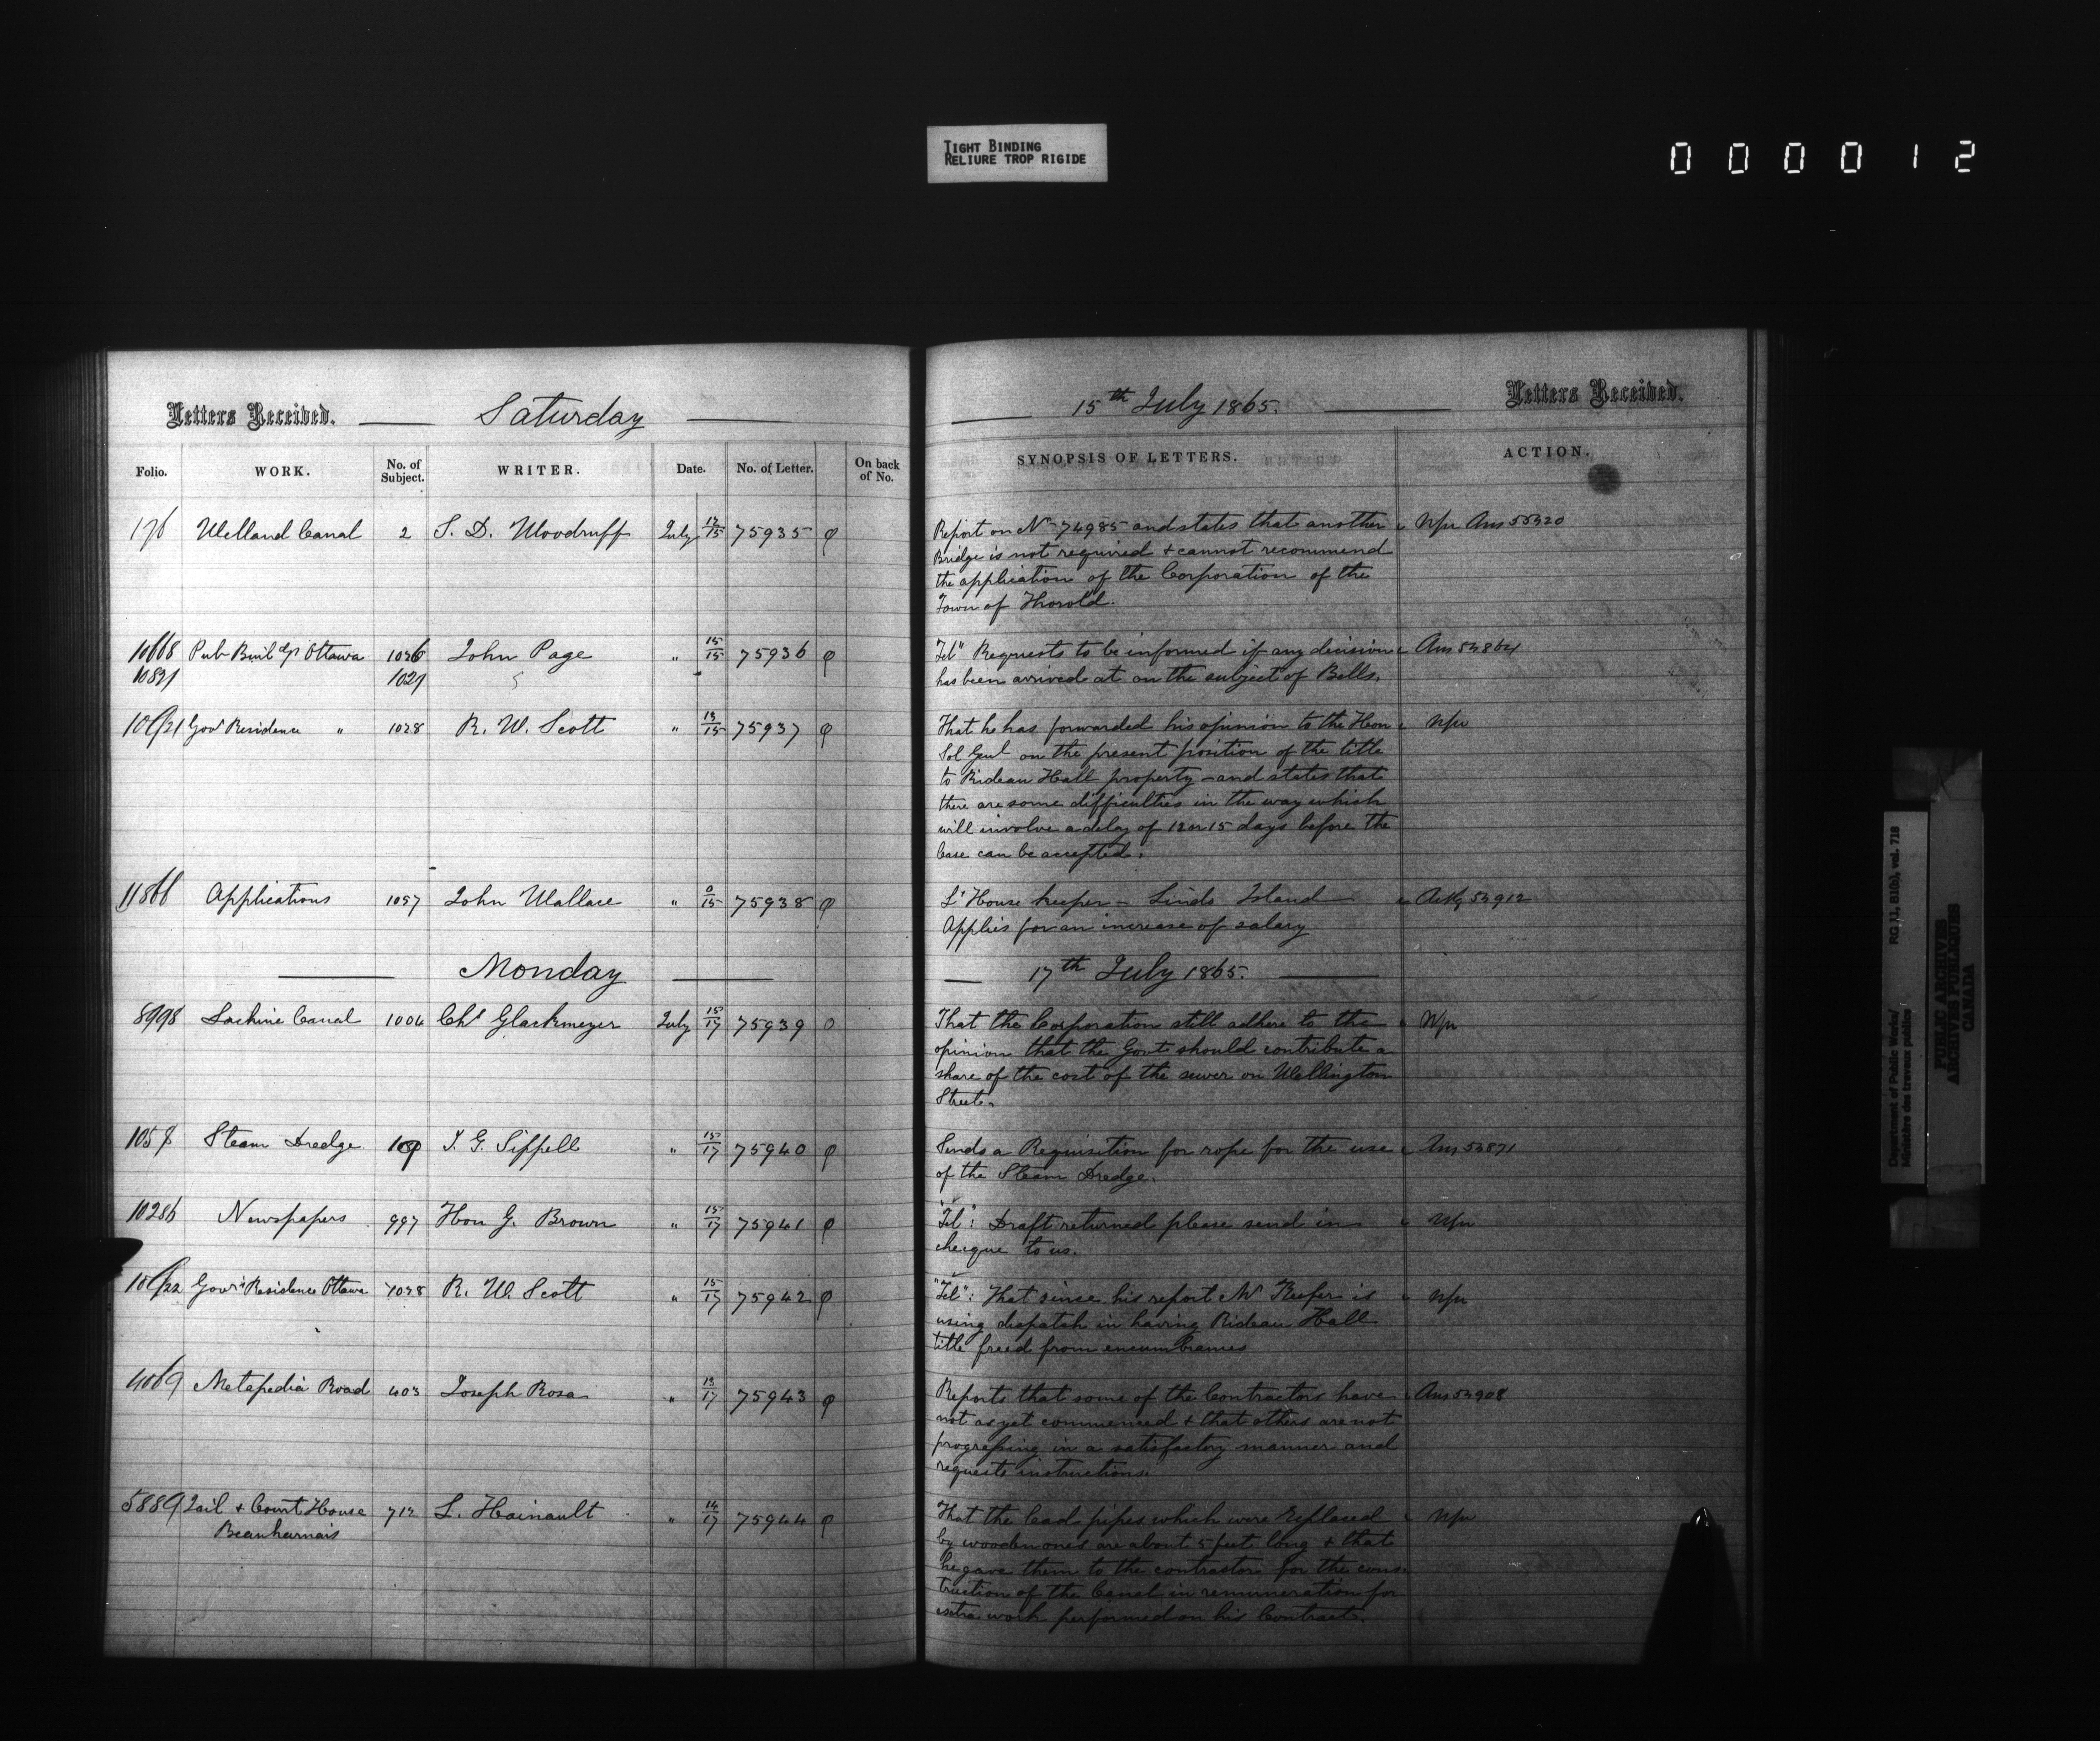 TIGHT BINDING
RELIURE TROP RIGIDE
0 0 0 0 1 2
Letters Received. Saturday
Folio. WORK. No. of Subject. WRITER. Date. No. of Letter. On back of No.
176 Welland Canal 2 S. D. Woodruff July 13/15 75935
10668 Pub Buildgs Ottawa 1026 John Page " 15/15 75936
10891 1021
Gov Residence " 1028 R. W. Scott " 13/15 75937
11866 Applications 1057 John Wallace " 0/15 75938
Monday
8998 Lachine Canal 1004 Chs Glackmeyer July 15/17 75939
1058 Steam Dredge J. G. Sippell " 15/17 75940
10286 Newspapers 997 Hon G. Brown " 15/17 75941
Govrs Residence Ottawa 1028 R. W. Scott " 15/17 75942
4069 Metapedia Road 403 Joseph Rosa " 13/17 75943
5889 Jail + Court House 712 L. Hainault " 14/17 75944
Beauharnais
15th July 1865. Letters Received.
SYNOPSIS OF LETTERS. ACTION.
Report on No 74985 and states that another Nfu Ans 55320
Bridge is not required + cannot recommend
the application of the Corporation of the
Town of Thorold.
Tel" Requests to be informed if any decision Ans 53864
has been arrived at on the subject of Bells.
That he has forwarded his opinion to the Hon Nfu
Sol Genl on the present position of the title
to Rideau Hall property - and states that
there are some difficulties in the way which
will involve a delay of 12 or 15 days before the
lease can be accepted.
Lt House keeper - Linds Island Ackg 53912
Applies for an increase of salary
17th July 1865.
That the Corporation still adhere to the Nfu
opinion that the Govt should contribute a
share of the cost of the sewer on Wellington
Street.
Sends a Requisition for rope for the use Ans 53871
of the Steam Dredge.
"Tel": Draft returned please send in Nfu
cheque to us.
"Tel": That since his report Mr Keefer is Nfu
using dispatch in having Rideau Hall
title freed from encumbrances
Reports that some of the Contractors have Ans 53908
not as yet commenced + that others are not
progressing in a satisfactory manner and
requests instructions.
That the lead pipes which were replaced Nfu
by wooden ones are about 5 feet long + that
he gave them to the contractor for the cons-
truction of the Canal in remuneration for
extra work performed on his Contract.
Department of Public Works/ RG 11, B1(b), vol. 718
Ministère des travaux publics
PUBLIC ARCHIVES
ARCHIVES PUBLIQUES
CANADA